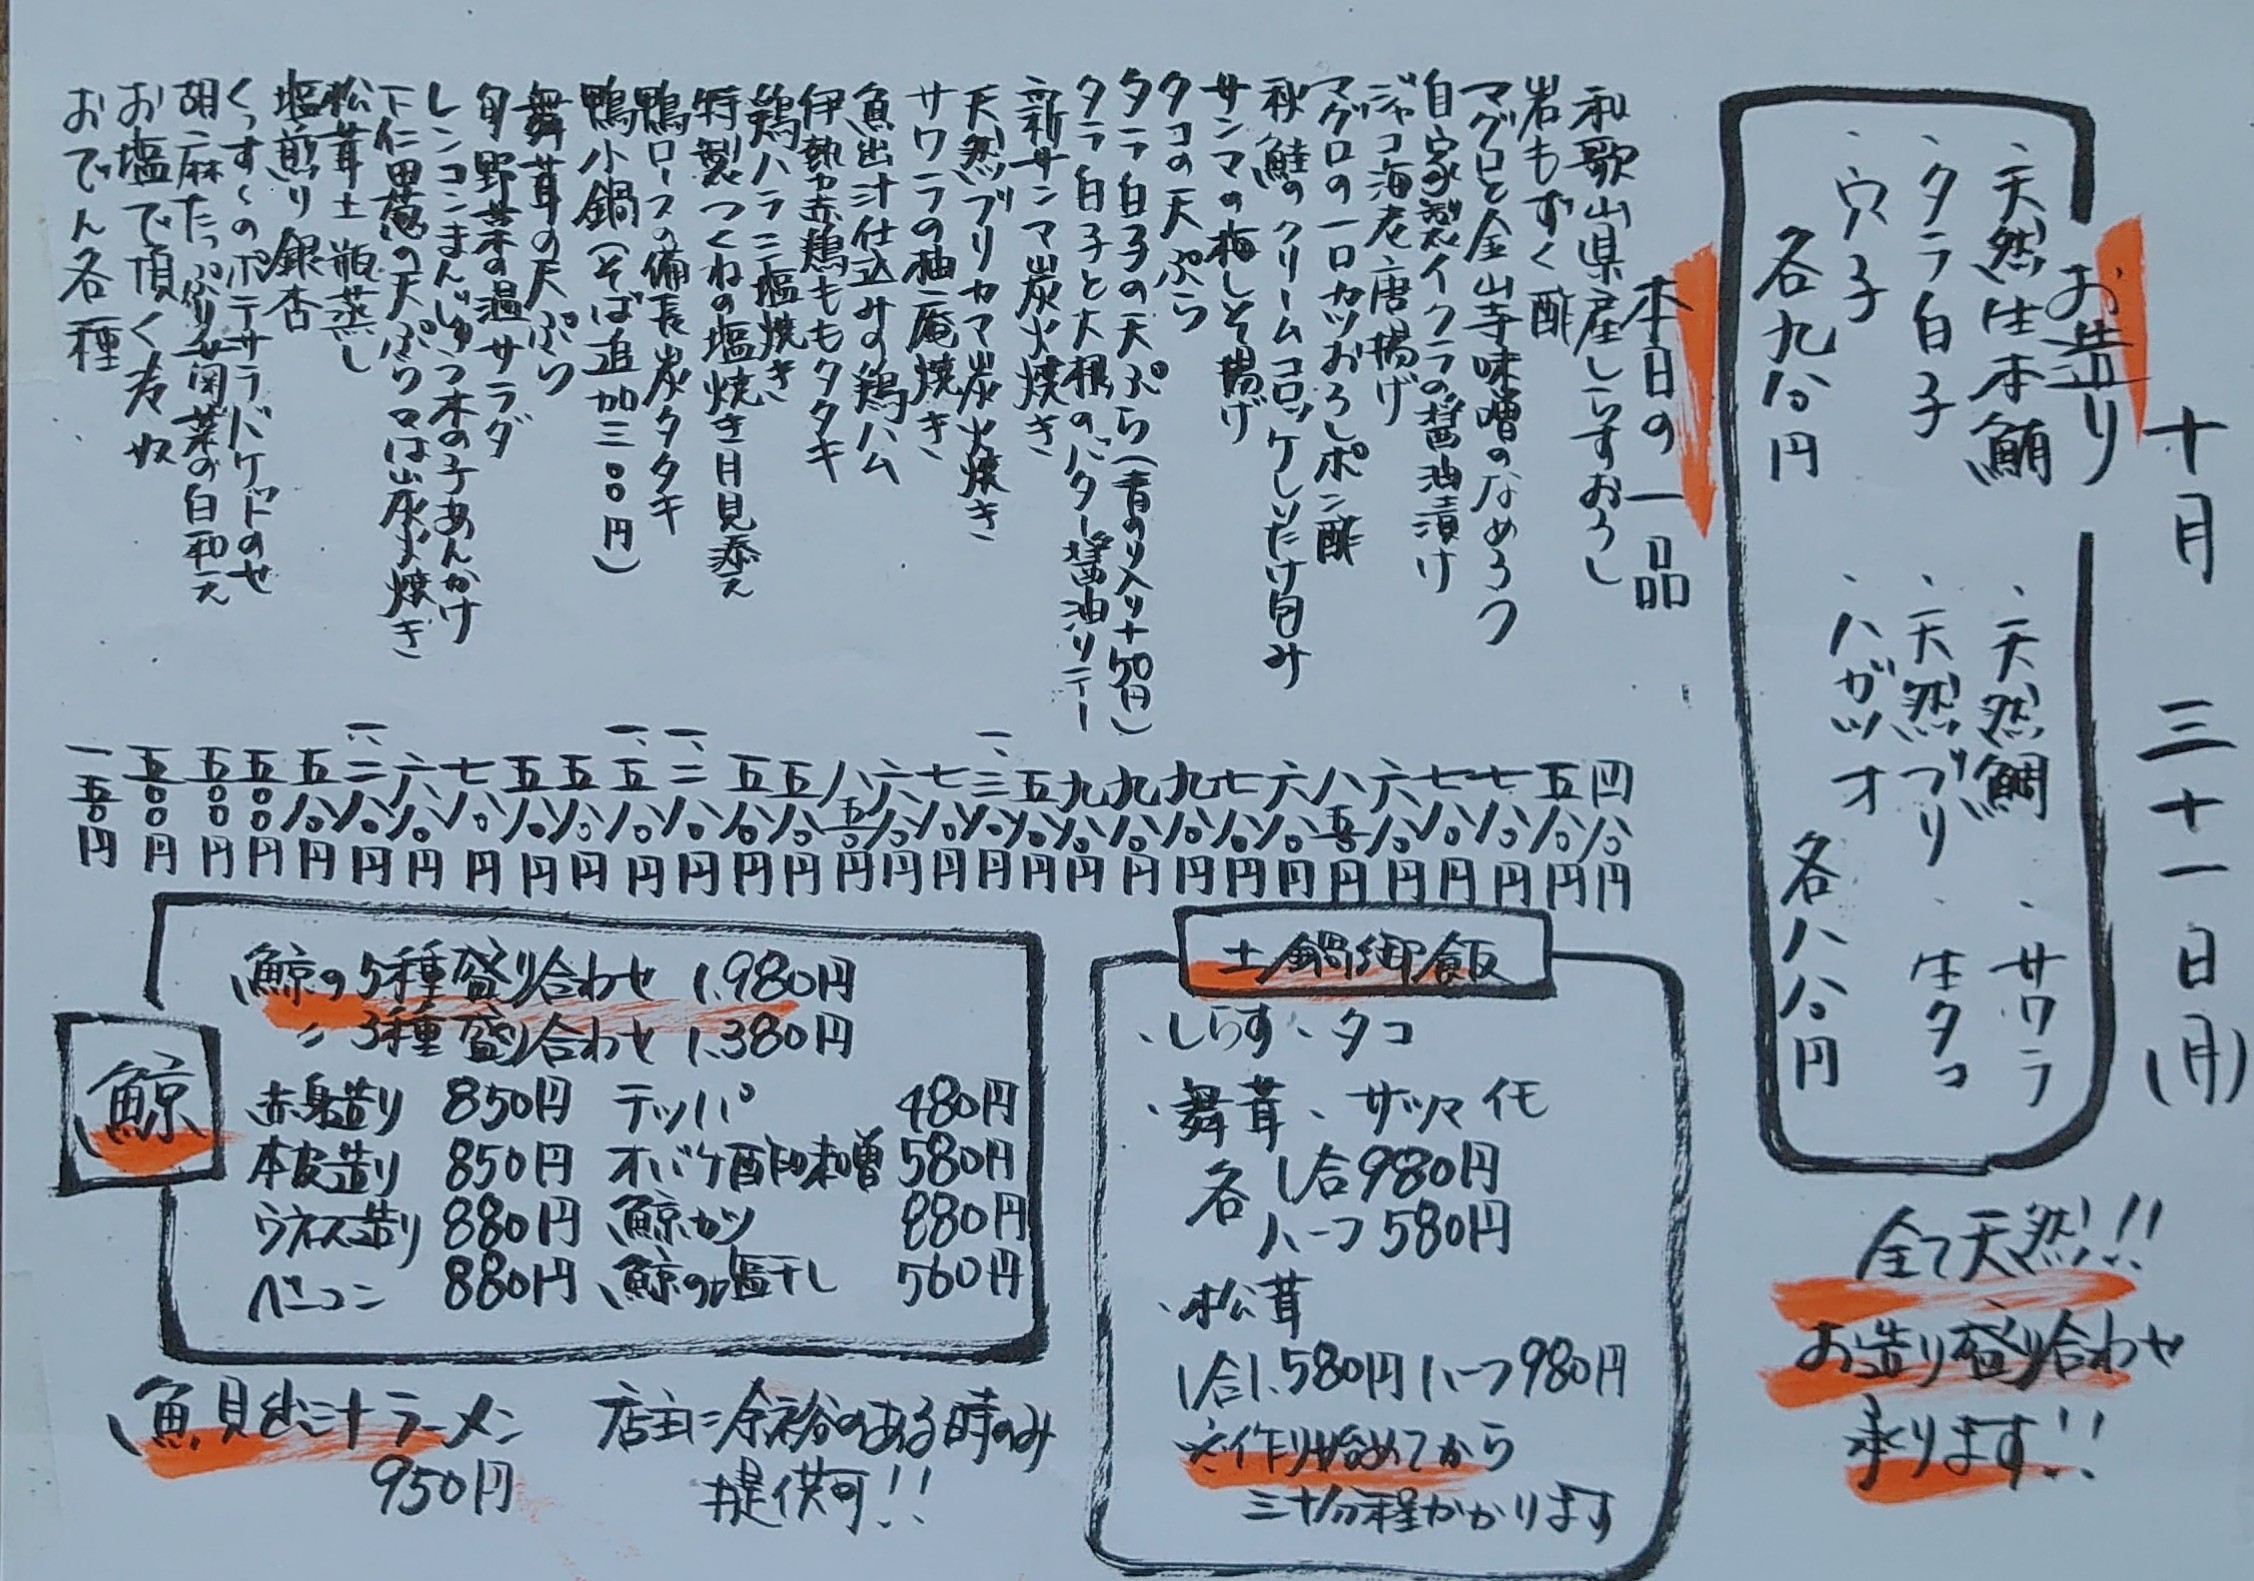 十月三十一日(月)
お造り
・天然生本鮪
・タラ白子
・穴子
各九八〇円
・天然鯛
・サワラ
・天然ブリ
・生タコ
・ハガツオ
各八八〇円
全て天然!!
お造り盛り合わせ
承ります!!
本日の一品
和歌山県産しらすおろし 四八〇円
岩もずく酢 五八〇円
マグロと金山寺味噌のなめろう 七八〇円
自家製イクラの醤油漬け 七八〇円
ジャコ海老唐揚げ 六八〇円
マグロの一口カツおろしポン酢 八五〇円
秋鮭のクリームコロッケしいたけ包み 六八〇円
サンマの梅しそ揚げ 七八〇円
タコの天ぷら 九八〇円
タラ白子の天ぷら(青のり入り+50円) 九八〇円
タラ白子と大根のバター醤油ソテー 九八〇円
新サンマ炭火焼き 五八〇円
天然ブリカマ炭火焼き 一、三八〇円
サワラの柚庵焼き 七八〇円
魚出汁仕込みの鶏ハム 六八〇円
伊勢赤鶏ももタタキ 八五〇円
鶏ハラミ塩焼き 五八〇円
特製つくねの塩焼き月見添え 五八〇円
鴨ロースの備長炭タタキ 一、二八〇円
鴨小鍋(そば追加三〇〇円) 一、五八〇円
舞茸の天ぷら 五八〇円
旬野菜の温サラダ 五八〇円
レンコンまんじゅう木の子あんかけ 七八〇円
下仁田葱の天ぷら又は炭火焼き 六八〇円
松茸土瓶蒸し 一、二八〇円
塩煎り銀杏 五八〇円
くっすーのポテサラバゲットのせ 五〇〇円
胡麻たっぷり春菊の白和え 五〇〇円
お塩で頂く冷奴 五〇〇円
おでん各種 一五〇円
土鍋御飯
・しらす・タコ
・舞茸・サツマイモ
各 1合980円
ハーフ580円
・松茸
1合1.580円 ハーフ980円
※作り始めてから
三十分程かかります
鯨
鯨の5種盛り合わせ 1.980円
〃 3種盛り合わせ 1.380円
赤身造り 850円 テッパ 480円
本皮造り 850円 オバケ酢味噌 580円
ウネス造り 880円 鯨カツ 880円
ベーコン 880円 鯨の塩干し 560円
魚貝出汁ラーメン
950円
店主に余裕のある時のみ
提供可!!